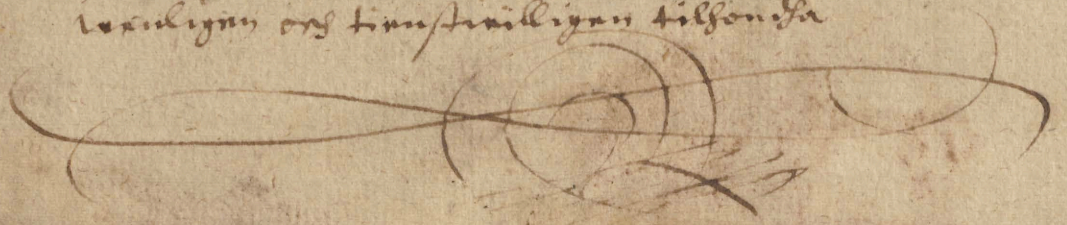 wenligen och tienstwilligen tilhonda